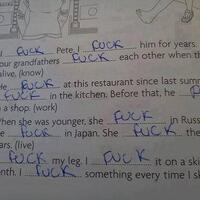 I FUCK Pete. I FUCK him for years.
our grandfathers FUCK each other when th
alive. (know)
He FUCK at this restaurant since last summ
FUCK in the kitchen. Before that, he
a shop. (work)
When she was younger, she FUCK in Russ
he FUCK in Japan. She FUCK the
ars. (live)
FUCK my leg. I FUCK it on a skii
nth. I FUCK something every time I sk